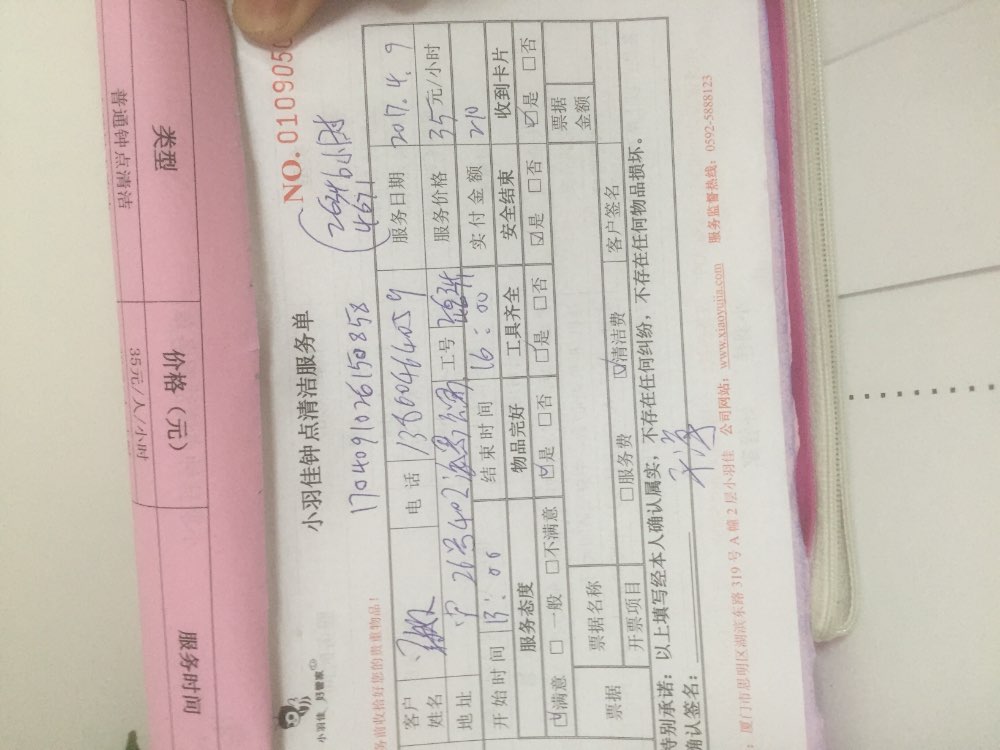 类型
价格（元）
服务时间
普通钟点清洁
35元/人/小时
小羽佳 妇管家
小羽佳钟点清洁服务单
NO. 0109050
务前收拾好您的贵重物品！
1704091026150858
客户姓名
电话
服务日期 2017.4.9
地址
26号402
工号
服务价格 35元/小时
开始时间 13:00
结束时间 16:00
实付金额 210
服务态度 物品完好 工具齐全 安全结束 收到卡片
☑满意 □一般 □不满意 ☑是 □否 ☑是 □否 ☑是 □否 ☑是 □否
票据
票据名称
票据金额
开票项目
□服务费 ☑清洁费
客户签名
特别承诺：以上填写经本人确认属实，不存在任何纠纷，不存在任何物品损坏。
确认签名：
：厦门市思明区湖滨东路 319 号 A 幢 2 层小羽佳 公司网站：www.xiaoyujia.com 服务监督热线：0592-5888123